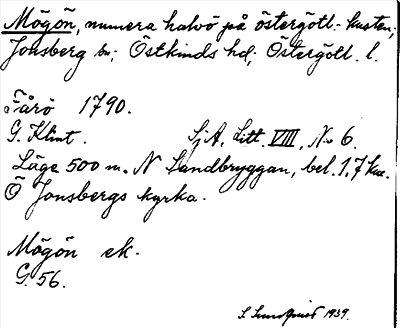 Mögön, numera halvö på östergötl.-kusten;
Jonsberg sn; Östkinds hd; Östergötl. l.
Fårö 1790.
G. Klint. SjA, Litt. VIII, No 6.
Läge 500 m. N Sandbryggan, bel. 1,7 km.
Ö Jonsbergs kyrka.
Mögön ek.
G. 56.
S. Sundquist 1939.